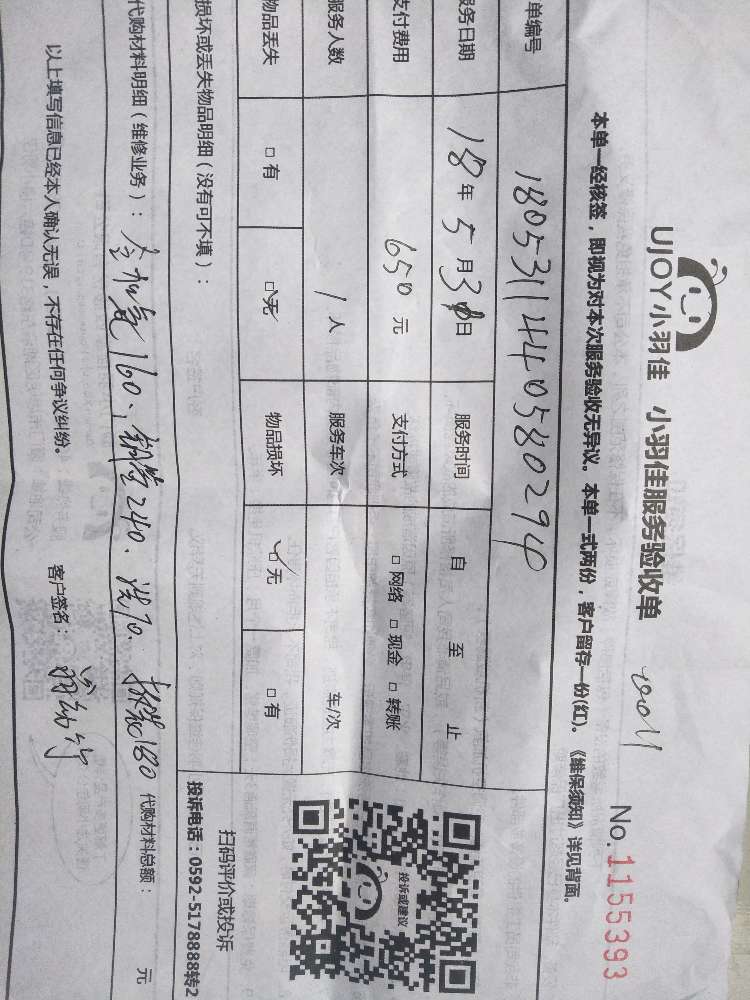 UJOY小羽佳 小羽佳服务验收单 No.1155393
本单一经核签，即视为对本次服务验收无异议。本单一式两份，客户留存一份(红)。《维保须知》详见背面。
单编号 1805311440580294
服务日期 18年5月31日 服务时间 自 至 止
支付费用 650元 支付方式 □网络 □现金 □转账
服务人数 1人 服务车次 车/次
物品丢失 □有 ☑无 物品损坏 ☑无 □有
损坏或丢失物品明细（没有可不填）：
投诉或建议
扫码评价或投诉
投诉电话：0592-5178888转2
代购材料明细（维修业务）： 160、铜管240、洗70、180 代购材料总额： 元
以上填写信息已经本人确认无误，不存在任何争议纠纷。 客户签名：